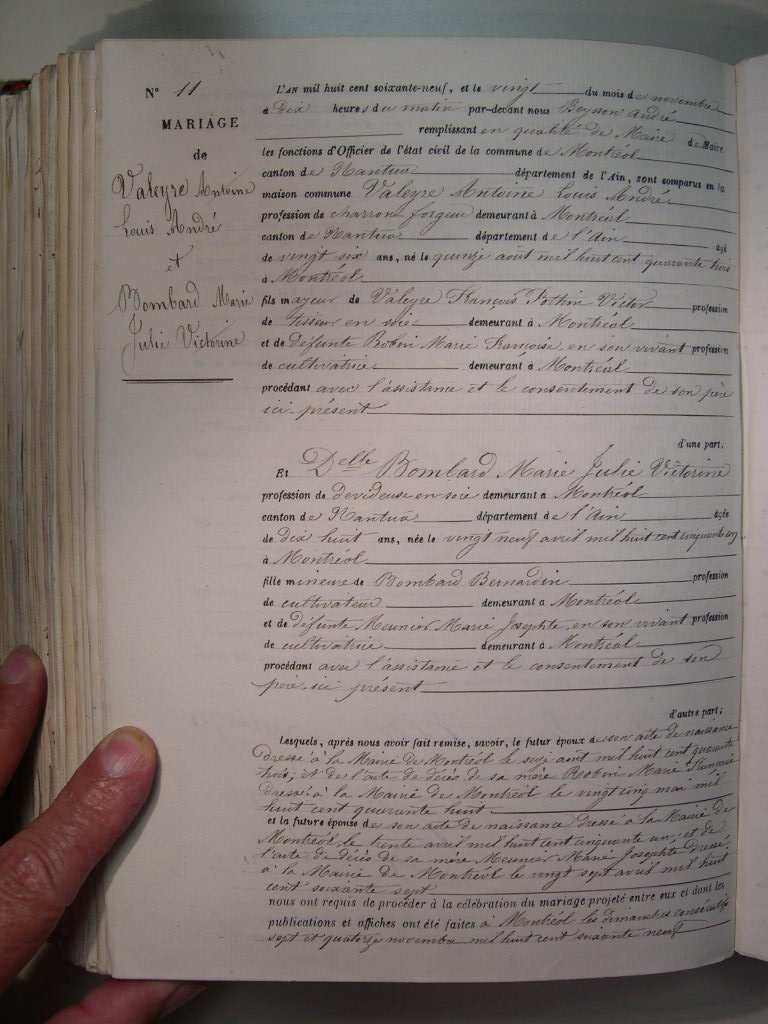 N° 11
MARIAGE
de
Valeyre Antoine
Louis André
et
Bombard Marie
Julie Victorine
L'AN mil huit cent soixante-neuf, et le vingt du mois de novembre
à Dix heures du matin par-devant nous Beysson André
remplissant en qualité de Maire de Maire
les fonctions d'Officier de l'état civil de la commune de Montréal
canton de Nantua département de l'Ain, sont comparus en la
maison commune Valeyre Antoine Louis André
profession de charron forgeur demeurant à Montréal
canton de Nantua département de l'Ain âgé
de vingt six ans, né le quinze août mil huit cent quarante trois
à Montréal
fils majeur de Valeyre François Pothin Victor profession
de tisseur en soie demeurant à Montréal
et de Défunte Robin Marie Françoise, en son vivant profession
de cultivatrice demeurant à Montréal
procédant avec l'assistance et le consentement de son père
ici présent
d'une part.
Et Delle Bombard Marie Julie Victorine
profession de dévideuse en soie demeurant à Montréal
canton de Nantua département de l'Ain âgée
de dix huit ans, née le vingt neuf avril mil huit cent cinquante un
à Montréal
fille mineure de Bombard Bernardin profession
de cultivateur demeurant à Montréal
et de défunte Meunier Marie Josephte en son vivant profession
de cultivatrice demeurant à Montréal
procédant avec l'assistance et le consentement de son
père ici présent
d'autre part;
Lesquels, après nous avoir fait remise, savoir, le futur époux de son acte de naissance
dressé à la Mairie de Montréal le seize août mil huit cent quarante
trois; et de l'acte de décès de sa mère Robin Marie Françoise
dressé à la Mairie de Montréal le vingt cinq mai mil
huit cent quarante huit
et la future épouse de son acte de naissance dressé à la Mairie de
Montréal le trente avril mil huit cent cinquante un, et de
l'acte de décès de sa mère Meunier Marie Josephte dressé
à la Mairie de Montréal le vingt sept avril mil huit
cent soixante sept
nous ont requis de procéder à la célébration du mariage projeté entre eux et dont les
publications et affiches ont été faites à Montréal les dimanches consécutifs
sept et quatorze novembre mil huit cent soixante neuf